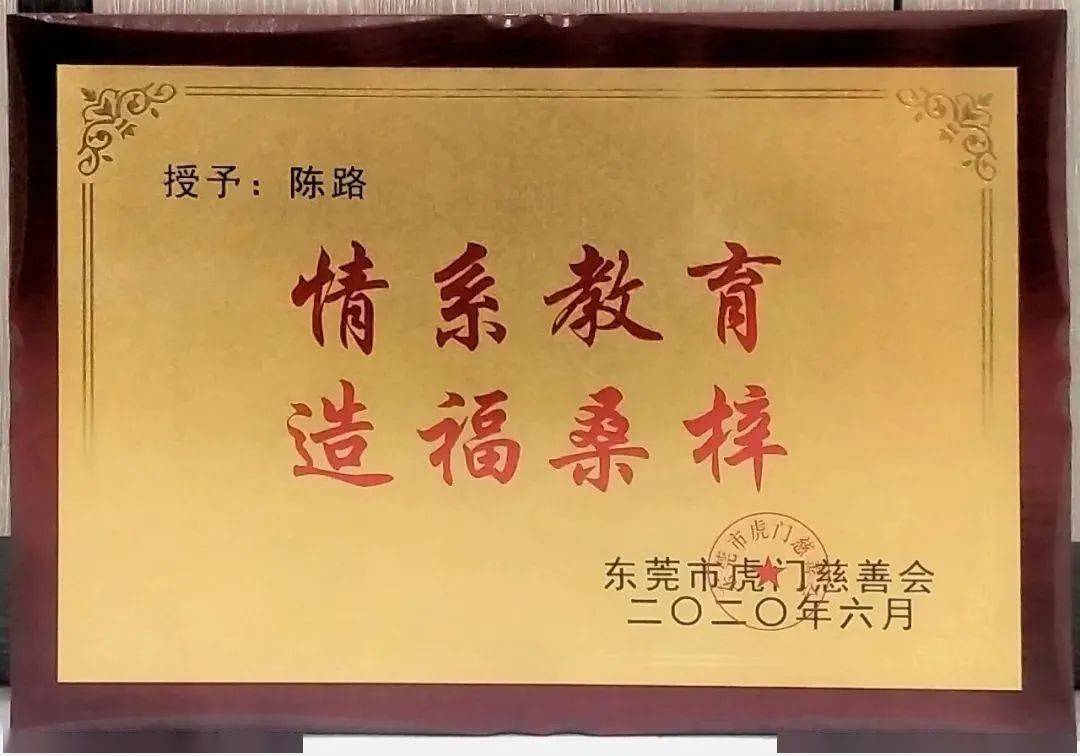 授予：陈路
情系教育
造福桑梓
东莞市虎门慈善会
二〇二〇年六月
东莞市虎门慈善会